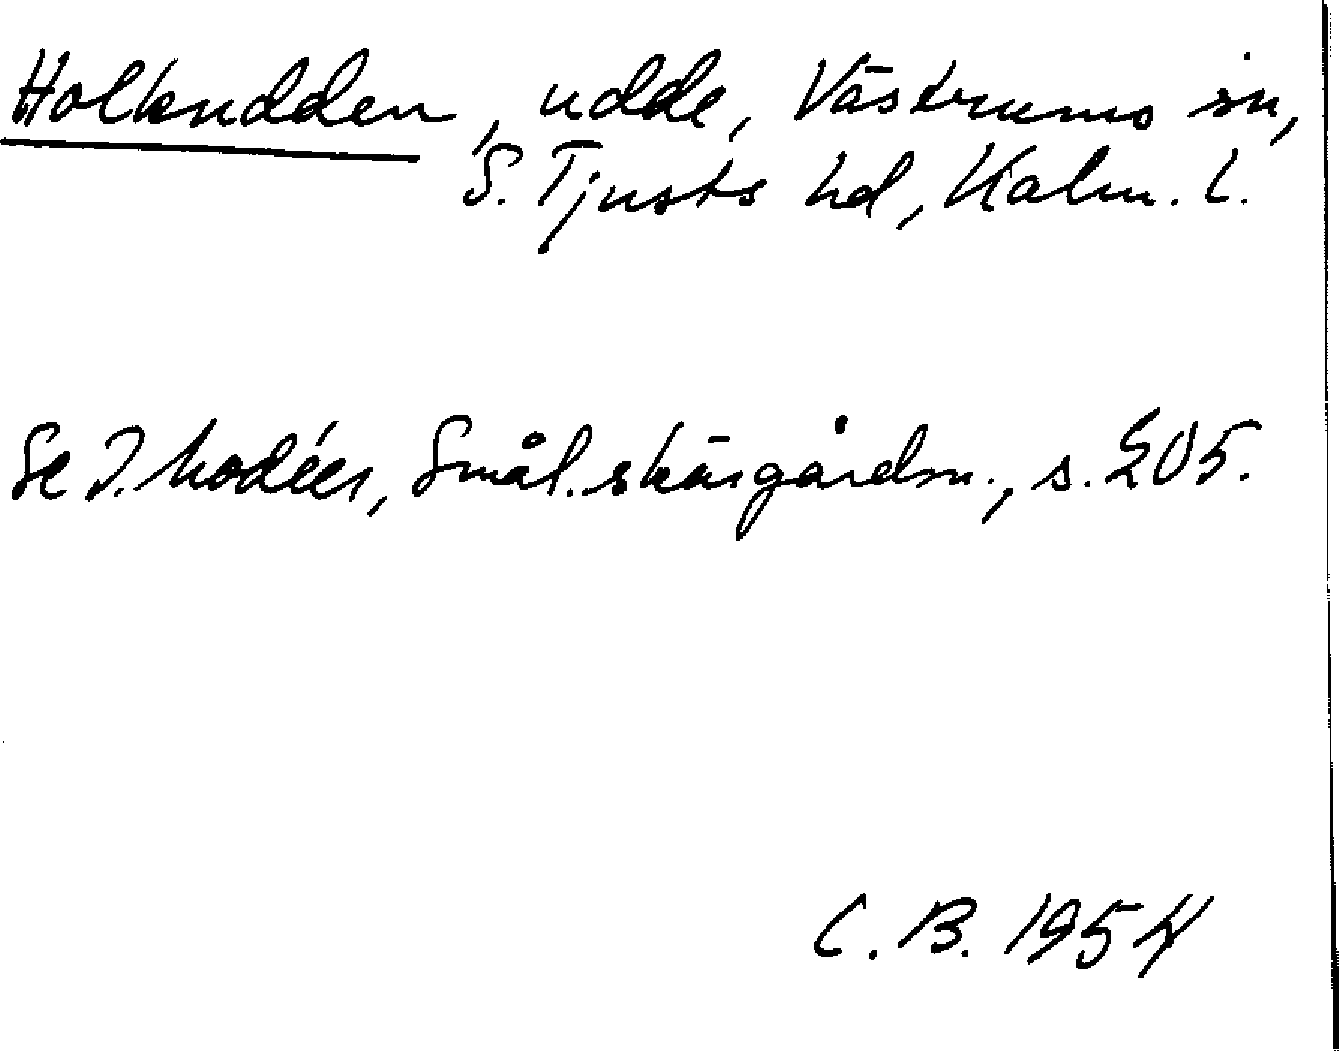 Holkudden, udde, Västrums sn,
S. Tjusts hd, Kalm. l.
Se I. Modéer, Smål. skärgårdsn., s. 205.
C. B. 1954